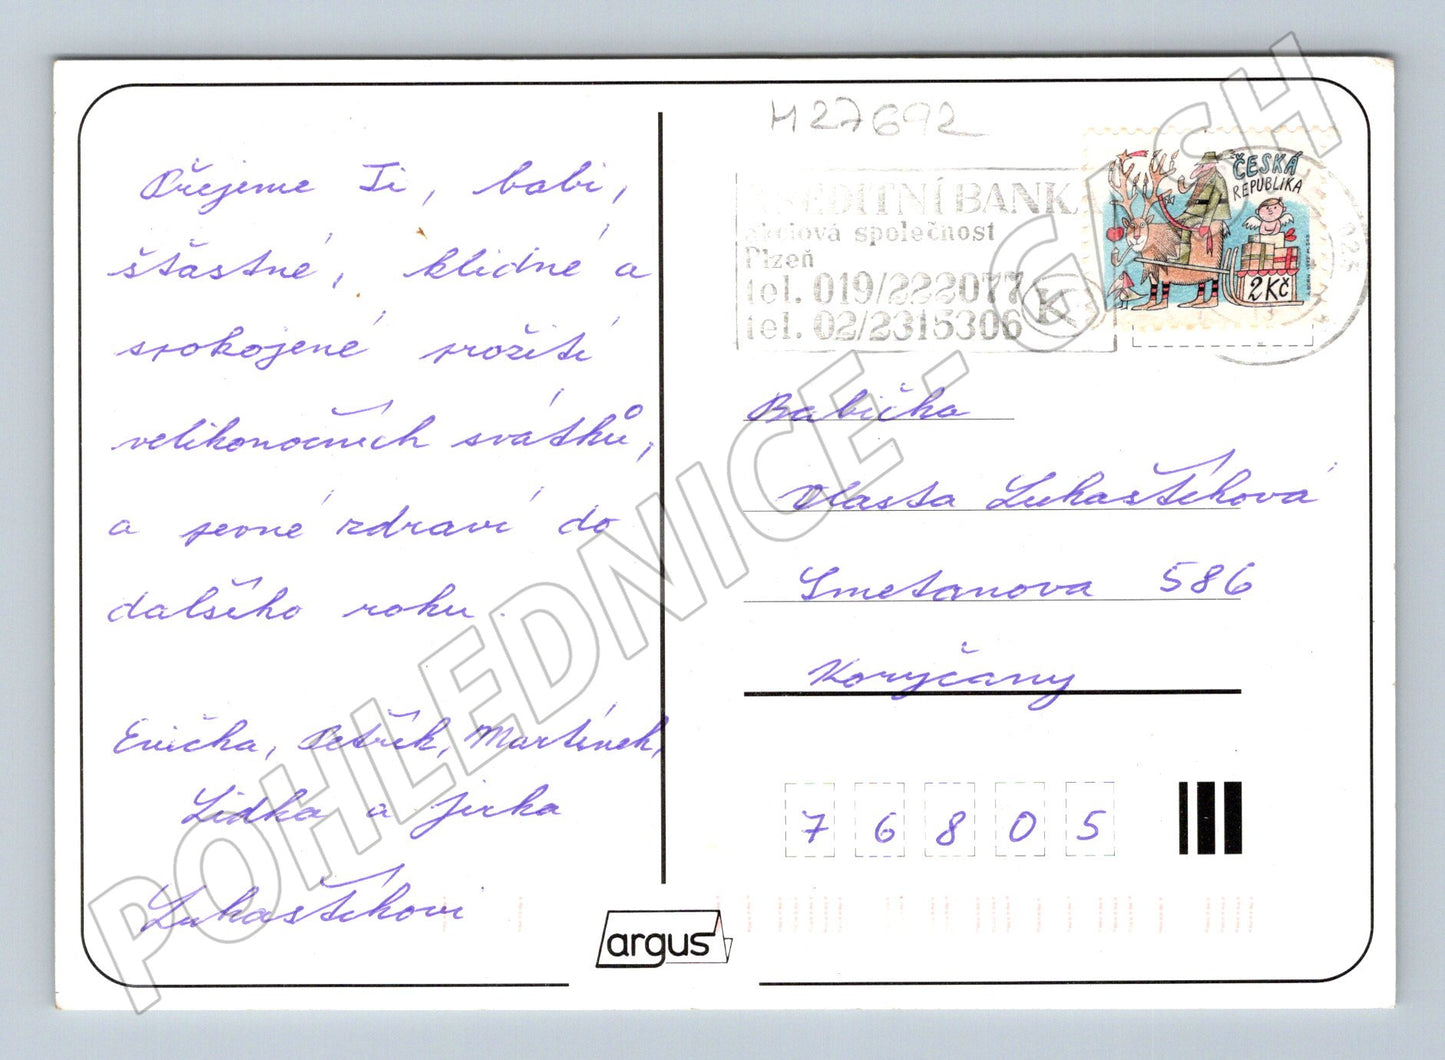 Přejeme Ti, babi,
šťastné, klidné a
spokojené prožití
velikonočních svátků,
a pevné zdraví do
dalšího roku.
Evička, Petřík, Martínek,
Lidka a Jirka
Lukaštíkovi
M27692
KREDITNÍ BANKA
akciová společnost
Plzeň
tel. 019/222077
tel. 02/2315306
K
ČESKÁ
REPUBLIKA
2 Kč
Babička
Vlasta Lukaštíková
Smetanova 586
Koryčany
7 6 8 0 5
argus
POHLEDNICE - GASH